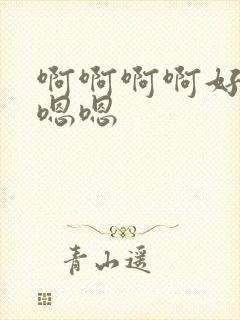 啊啊啊啊好
嗯嗯
青山遥